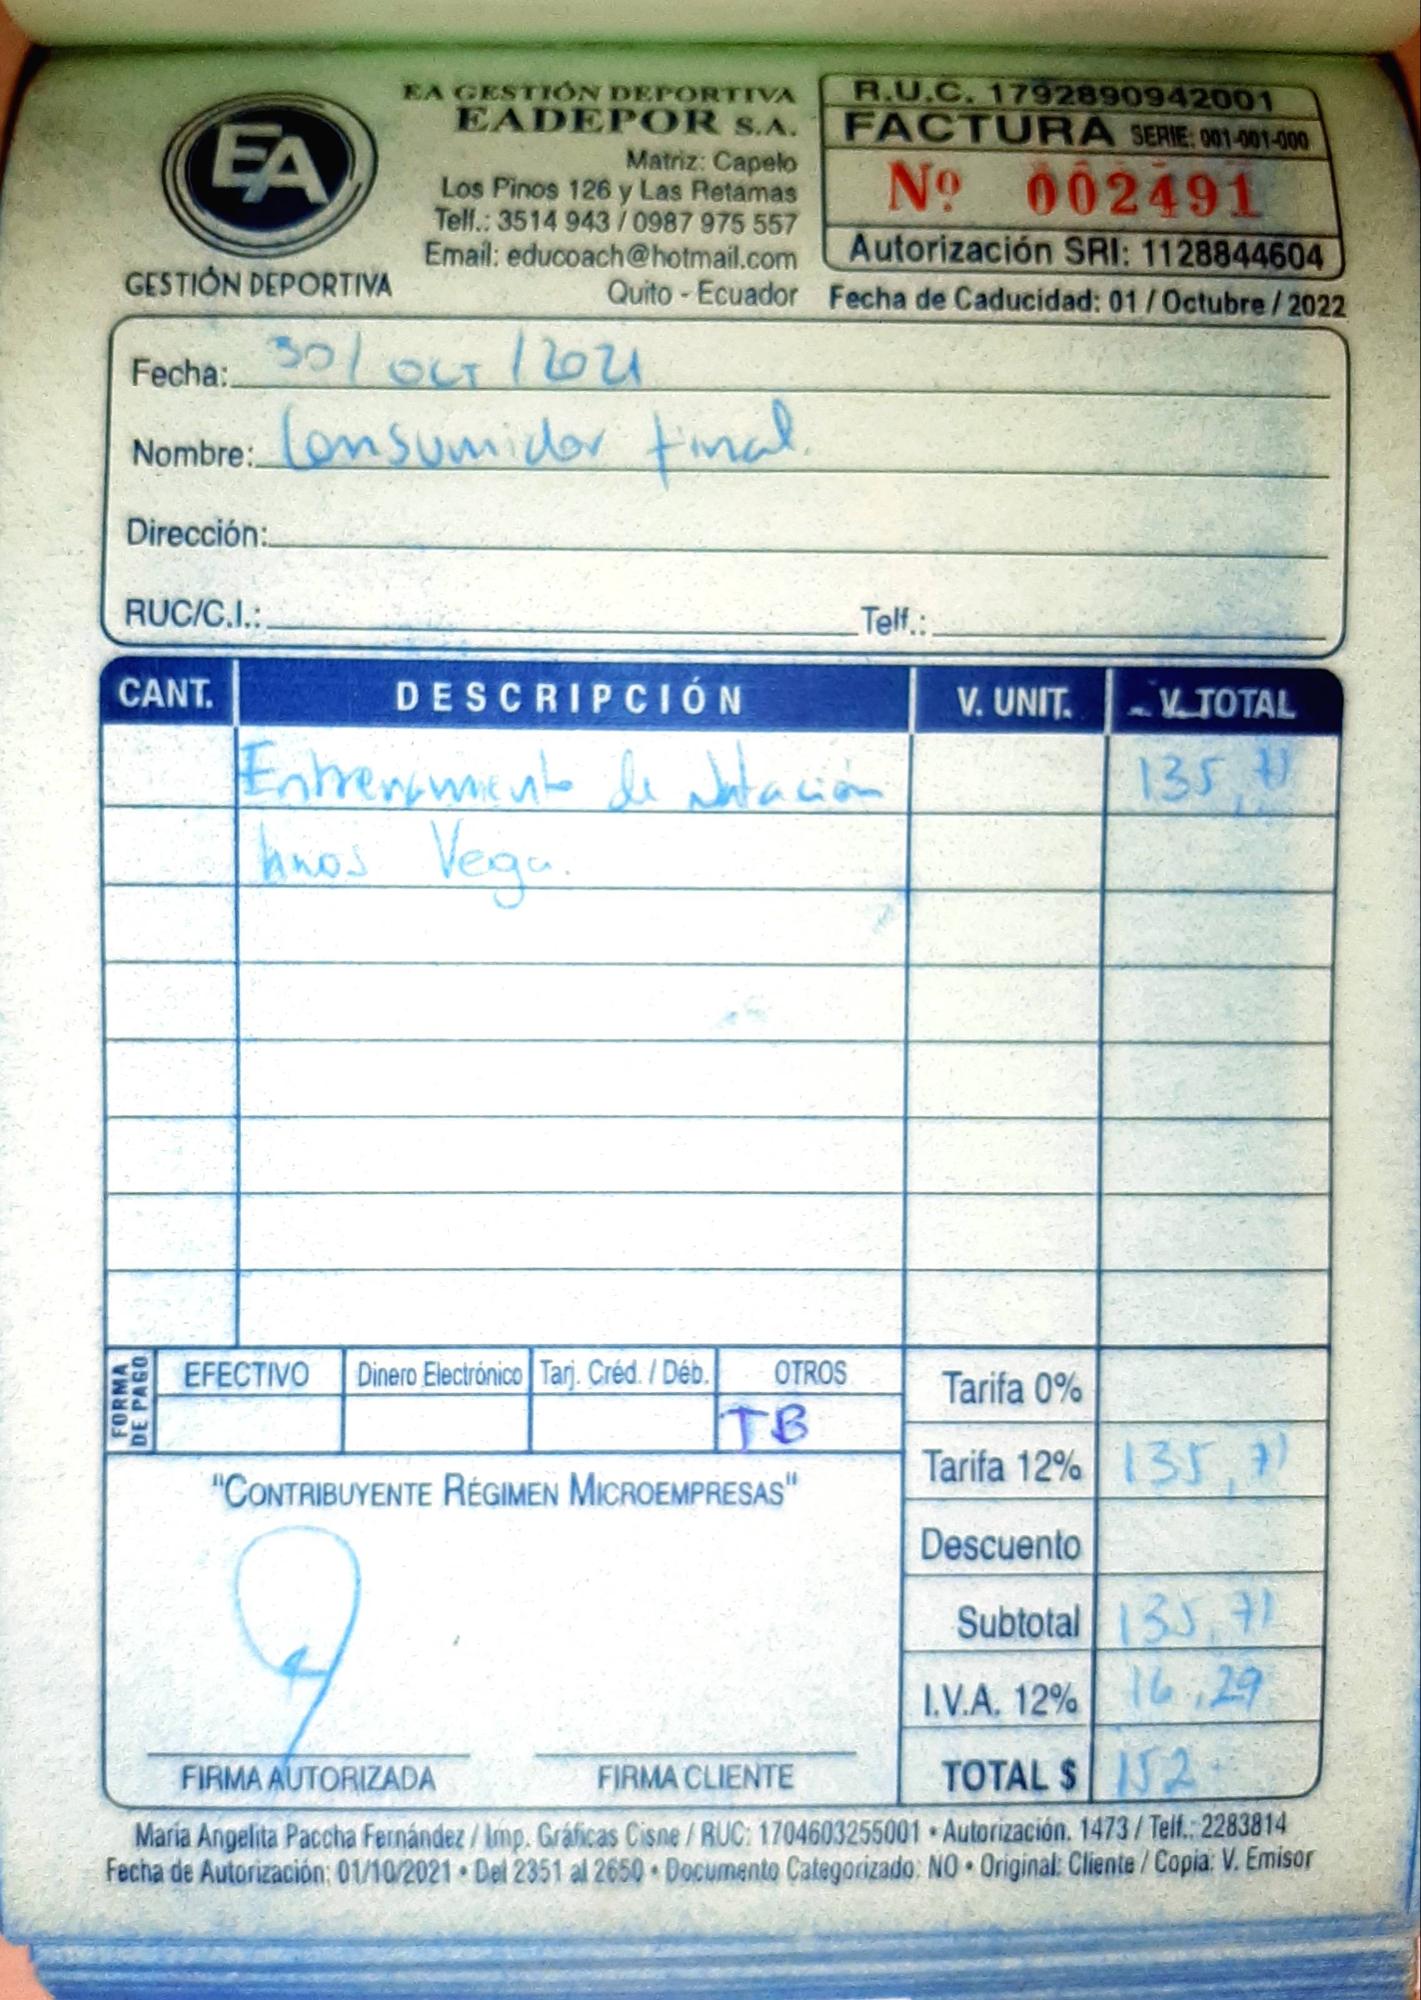 EA
GESTIÓN DEPORTIVA
EA GESTIÓN DEPORTIVA
EADEPOR S.A.
Matriz: Capelo
Los Pinos 126 y Las Retamas
Telf.: 3514 943 / 0987 975 557
Email: educoach@hotmail.com
Quito - Ecuador
R.U.C. 1792890942001
FACTURA SERIE: 001-001-000
Nº 002491
Autorización SRI: 1128844604
Fecha de Caducidad: 01 / Octubre / 2022
Fecha: 30/ OCT /2021
Nombre: Consumidor final.
Dirección:
RUC/C.I.: Telf.:
CANT. DESCRIPCIÓN V. UNIT. V. TOTAL
Entrenamiento de Natación 135,71
hnos Vega.
FORMA DE PAGO EFECTIVO Dinero Electrónico Tarj. Créd. / Déb. OTROS
TB
Tarifa 0%
Tarifa 12% 135,71
Descuento
Subtotal 135,71
I.V.A. 12% 16,29
TOTAL $ 152
"CONTRIBUYENTE RÉGIMEN MICROEMPRESAS"
FIRMA AUTORIZADA FIRMA CLIENTE
María Angelita Paccha Fernández / Imp. Gráficas Cisne / RUC: 1704603255001 • Autorización. 1473 / Telf.: 2283814
Fecha de Autorización: 01/10/2021 • Del 2351 al 2650 • Documento Categorizado: NO • Original: Cliente / Copia: V. Emisor